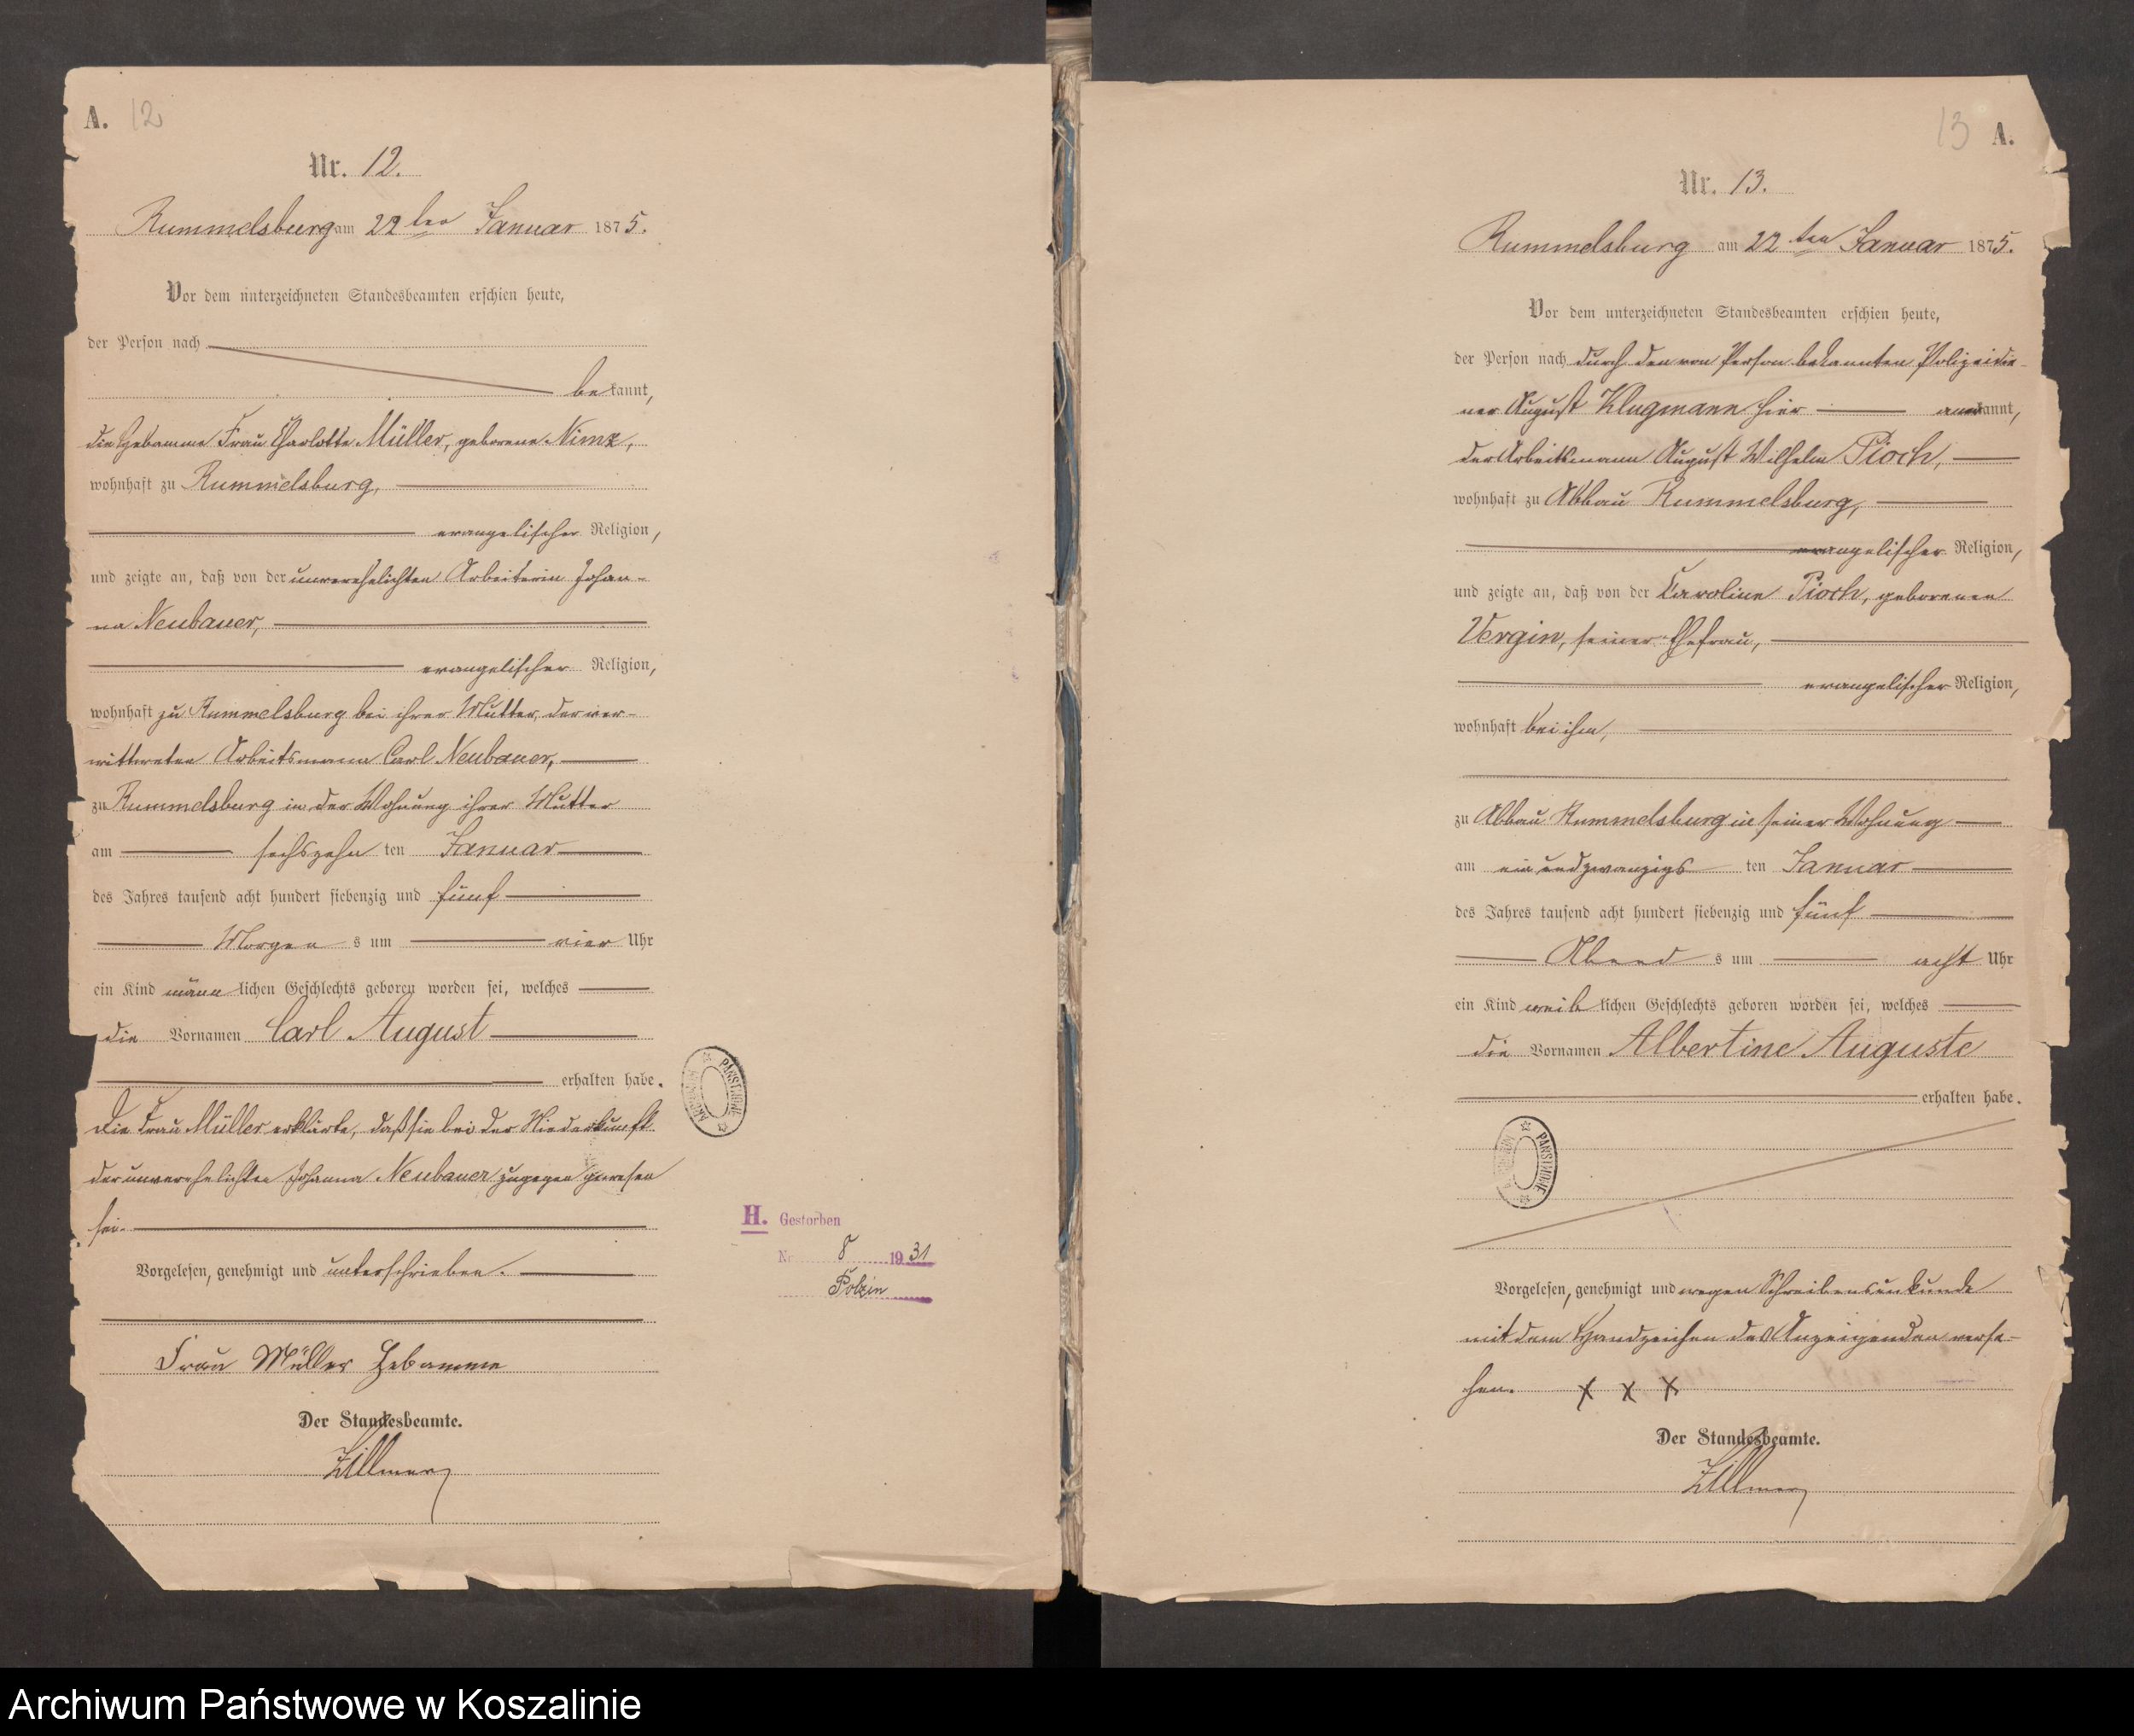 A. 12
Nr. 12.
Rummelsburg am 22ten Januar 1875.
Vor dem unterzeichneten Standesbeamten erschien heute,
der Person nach
bekannt,
die Hebamme Frau Charlotte Müller, geborene Nimz,
wohnhaft zu Rummelsburg,
evangelischer Religion,
und zeigte an, daß von der unverehelichten Arbeiterin Johan-
na Neubauer,
evangelischer Religion,
wohnhaft zu Rummelsburg bei ihrer Mutter, der ver-
wittweten Arbeitsmann Carl Neubauer,
zu Rummelsburg in der Wohnung ihrer Mutter
am sechszehn ten Januar
des Jahres tausend acht hundert siebenzig und fünf
Morgen s um vier Uhr
ein Kind männ lichen Geschlechts geboren worden sei, welches
die Vornamen Carl August
erhalten habe.
Die Frau Müller erklärte, daß sie bei der Niederkunft
der unverehelichten Johanna Neubauer zugegen gewesen
sei.
Vorgelesen, genehmigt und unterschrieben.
Frau Müller Hebamme
Der Standesbeamte.
Zillmer
ARCHIWUM PAŃSTWOWE
H. Gestorben
Nr 8 1931
Polzin
13 A.
Nr. 13.
Rummelsburg am 22ten Januar 1875.
Vor dem unterzeichneten Standesbeamten erschien heute,
der Person nach durch den von Person bekannten Polizeidie-
ner August Klugmann hier anerkannt,
der Arbeitsmann August Wilhelm Pioch,
wohnhaft zu Abbau Rummelsburg,
evangelischer Religion,
und zeigte an, daß von der Caroline Pioch, geborenen
Vergin, seiner Ehefrau,
evangelischer Religion,
wohnhaft bei ihm,
zu Abbau Rummelsburg in seiner Wohnung
am ein und zwanzigs ten Januar
des Jahres tausend acht hundert siebenzig und fünf
Abend s um acht Uhr
ein Kind weib lichen Geschlechts geboren worden sei, welches
die Vornamen Albertine Auguste
erhalten habe.
ARCHIWUM PAŃSTWOWE
Vorgelesen, genehmigt und wegen Schreibensunkunde
mit dem Handzeichen des Anzeigenden verse-
hen. x x x
Der Standesbeamte.
Zillmer
Archiwum Państwowe w Koszalinie